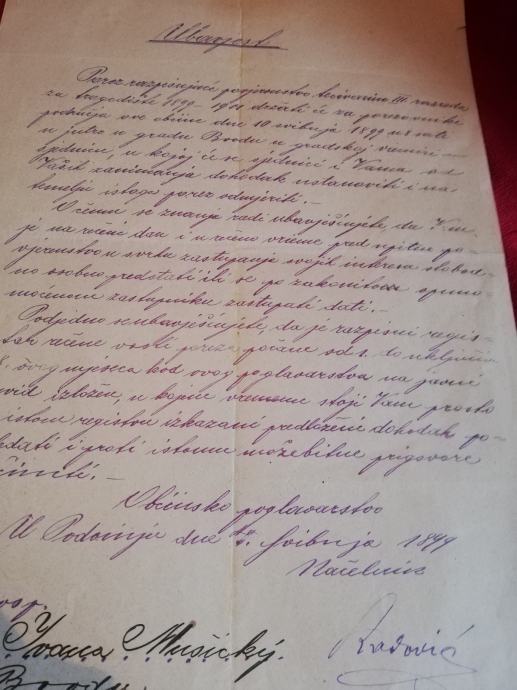 Ubavjest.
Porez razpisujuće povjerenstvo tečevinu III razreda
za trogodište 1899-1901 držati će za porezovnike
područja ove obćine dne 10 svibnja 1899 u 8 sati
u jutro u gradu Brodu u gradskoj
sjednicu, u kojoj će se sjednici i Vama od
Vaših zanimanja dohodak ustanoviti i na
temelju istoga porez odmjeriti.-
O čemu se znanja radi ubavješćujete, da Vam
je na rečeni dan i u rečeno vrieme pred njetno po-
vjerenstvo u svrhu zastupanja svojih interesa slobod-
no osobno predstati ili se po zakonitom opuno-
moćenom zastupniku zastupati dati.-
Podjedno se ubavješćujete, da je razpisni regis-
tar rečene vrsti poreza počam od 1. do uključivo
8. ovog mjeseca kod ovog poglavarstva na javni
uvid izložen, u kojem vremenu stoji Vam prosto
u istom registru izkazani predloženi dohodak po-
gledati i proti istomu možebitne prigovore
činiti.-
Obćinsko poglavarstvo
U Podvinju dne svibnja 1899
Načelnik
Ivana Mušicky.
Radović
Brodu